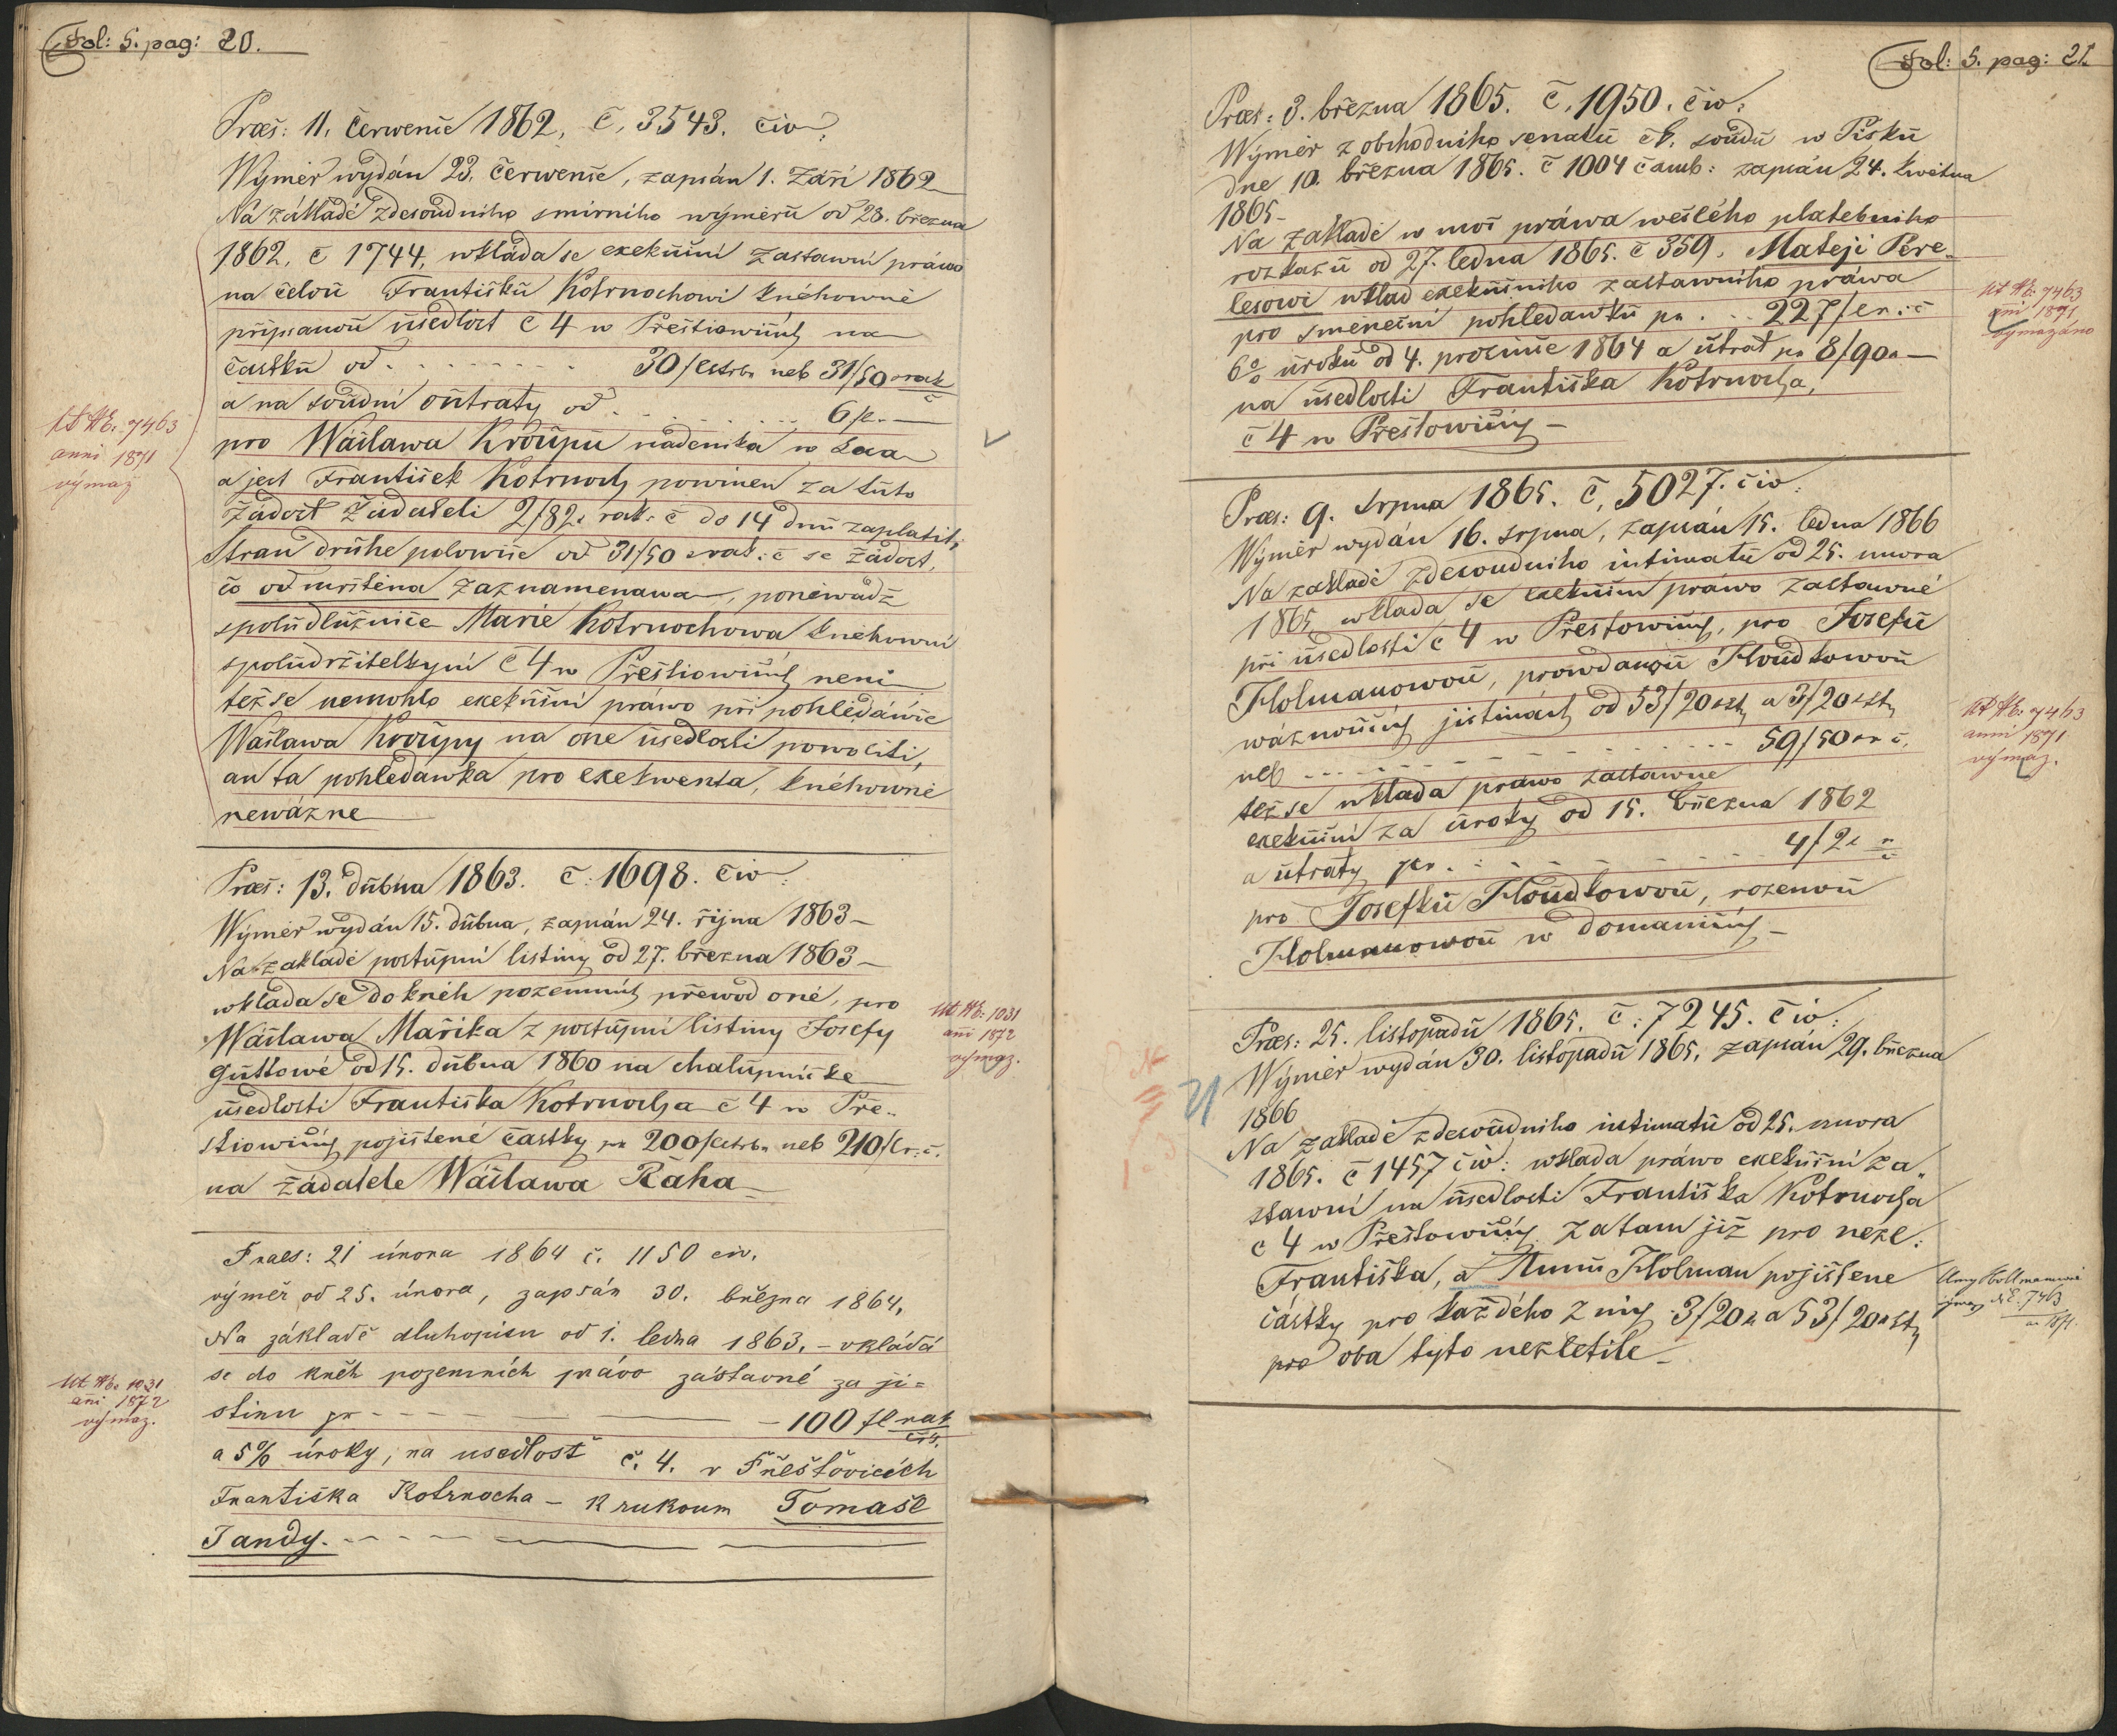 Fol: 5. pag: 20.
Præs: 11. červenče 1862. č. 3543. civ:
Wýměr wydán 23. červenče, zapsán 1. Září 1862
Na základě zdesoudního smírního wýměru od 28. března
1862. č 1744, wkláda se exekuční zastawní práwo
na čelou Františku Kotrnochowi knéhowně
připsanou usedlost č 4 w Přeštiowičích na
častku od . . . . . . . . 30/ Cstrb. neb 31/50 x rak
č
a na soudní outraty od . . . . . . . 6 fl. —
pro Wáčlawa Kroupu nádenika w
a jest František Kotrnoch powinen za tuto
Žádost Žadateli 2/82x rak: č do 14 dnů zaplatit;
Stran druhe polowiče od 31/50 x rak: č se žádost,
čo odmrštěna zaznamenawa, poněwádž
spoludlužniče Marie Kotrnochowa knéhowní
spoludržitelkyní č 4 w Přeštiowičích neni
též se nemohlo exekuční práwo při pohledáwče
Wáčlawa Kroupy na oné usedlosti powoliti,
an ta pohledawka pro exekwenta, knéhowně
newázne
Ut № E. 7463
anni 1871
výmaz
Præs: 13. dubna 1863. č: 1698. civ:
Wýměr wydán 15. dubna, zapsán 24. řijna 1863 —
Na základě postupní listiny od 27. března 1863 —
wkláda se do knéh pozemních přewod oné, pro
Wáčlawa Mařika z postupní listiny Josefy
Guttowé od 15. dubna 1860 na chalupničke
usedlosti Františka Kotrnocha č 4 w Pře-
štiowičích pojištené častky pr 200/ Cstrb. neb 210/ r: č.
na žádatele Wáčlawa Ráha
Ut № E. 1031
añi 1872
výmaz.
Praes: 21 února 1864 č. 1150 civ.
výměr od 25. února, zapsán 30. března 1864.
Na základě dluhopisu od 1. ledna 1863. — vkládá
se do kněh pozemních právo zástavné za ji=
stinu pr — — — — 100 fl rak
čís.
a 5% úroky, na usedlost č. 4. v Přešťovicích
Františka Kotrnocha — k rukoum Tomaše
Jandy. — — —
Ut № E. 1031
añi 1872
výmaz.
Fol: 5. pag: 21.
Præs: 3. března 1865. č. 1950. civ:
Wýměr z obchodního senatu čk. soudu w Pisku
dne 10. března 1865. č 1004 čamb: zapsán 24. kwětna
1865 —
Na základě w moč práwa wešlého platebního
rozkazu od 27. ledna 1865. č 359. Matěji Pere-
lesowi wklad exekučního zastawního práwa
pro směneční pohledawku pr . . . 227/ er: č
6% úroku od 4. prosinče 1864 a utrat pr 8/90x —
na usedlosti Františka Kotrnocha,
č 4 w Přeštowičich —
Ut № E. 7463
añi 1871
výmazáno
Præs: 9. srpna 1865. č. 5027. civ:
Wýměr wydán 16. srpna, zapsán 15. ledna 1866
Na základě zdesoudního intimatu od 25. unora
1865 wkláda se exekuční práwo zastawné
při usedlosti č 4 w Přeštowičich, pro Josefu
Holmanowou, prowdanou Houdkowou
wáznoučích jistinách od 53/20 x st a 3/20 x st
neb . . . . . . . . . 59/50 x r č.
též se wkláda práwo zastawne
exekuční za úroky od 15. března 1862
a utraty pr . . . . . . . . 4/2x r
č
pro Josefku Houdkowou, rozenou
Holmanowou w domaničích —
Ut № E. 7463
anni 1871
výmaz.
Præs: 25. listopadu 1865. č: 7245. civ:
Wýměr wydán 30. listopadu 1865. zapsán 29. března
1866
Na základě zdesoudního intimatu od 25. unora
1865. č 1457 civ: wkláda práwo exekuční za-
stawní na usedlosti Františka Kotrnocha
č 4 w Přeštowičich zatam již pro nezl:
Františka, a Annu Holman pojištene
částky pro každého z nich 3/20x a 53/20 x st
pro oba tyto nezletile —